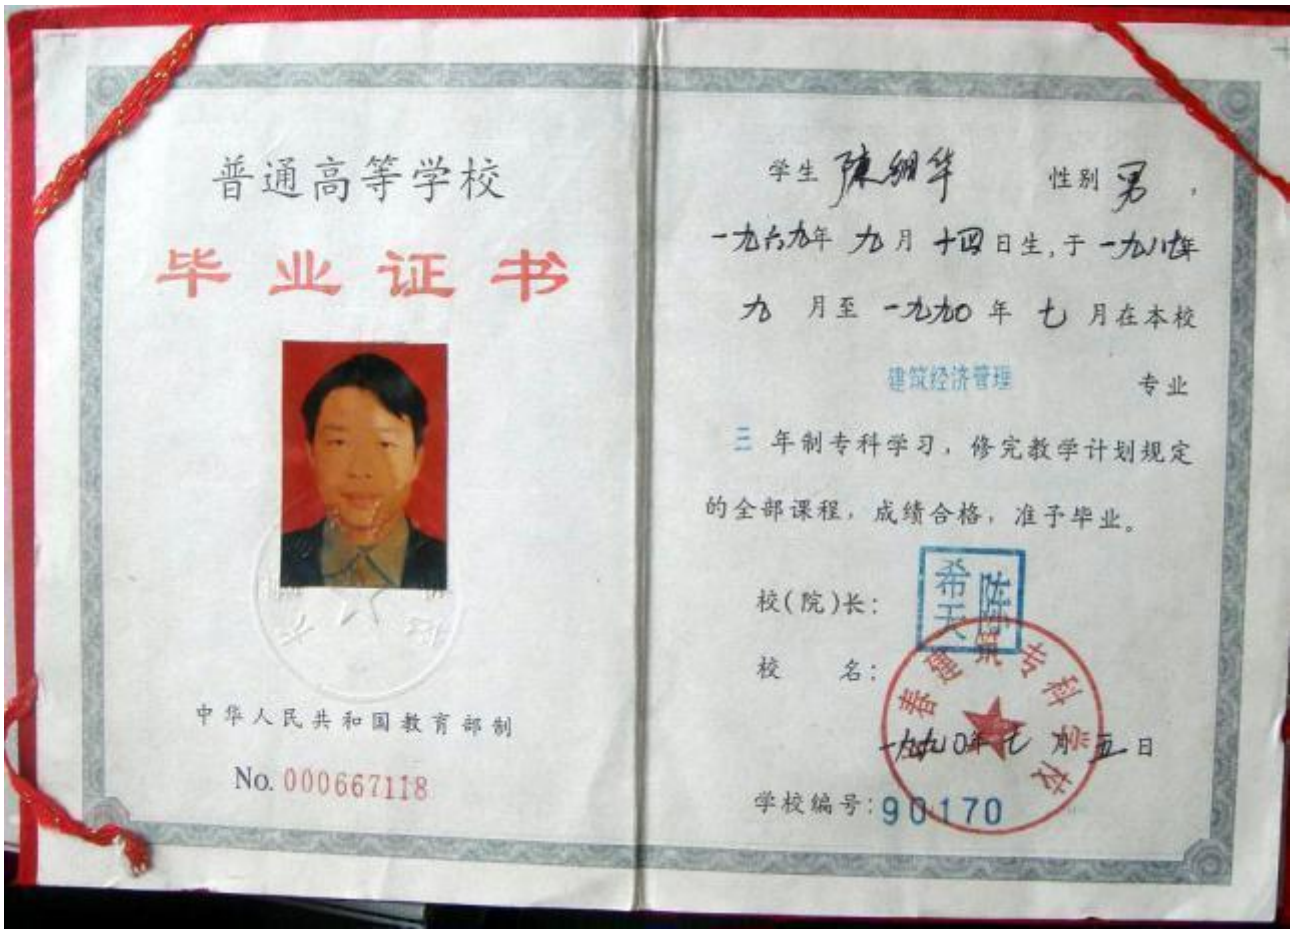 普通高等学校
毕业证书
中华人民共和国教育部制
No. 000667118
学生 陳 华 性别 男,
一九六九年 九月 十四日生,于 一九八七年
九 月至 一九九〇 年 七 月在本校
建筑经济管理 专业
三 年制专科学习,修完教学计划规定
的全部课程,成绩合格,准予毕业。
校(院)长: 陈希天
校 名:
春建筑专科学校
一九九〇年七月五日
学校编号:90170